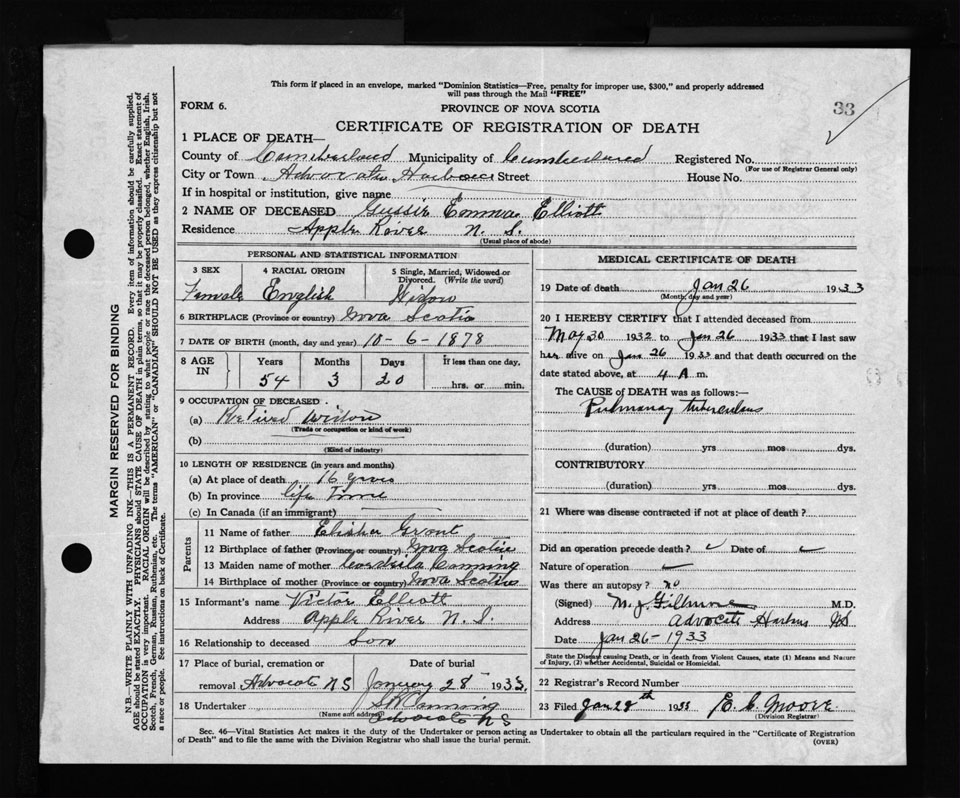 This form if placed in an envelope, marked "Dominion Statistics—Free, penalty for improper use, $300," and properly addressed
will pass through the Mail "FREE"
FORM 6.
PROVINCE OF NOVA SCOTIA
33
CERTIFICATE OF REGISTRATION OF DEATH
1 PLACE OF DEATH—
County of Cumberland Municipality of Cumberland Registered No.
(For use of Registrar General only)
City or Town Advocate Harbour Street House No.
If in hospital or institution, give name
2 NAME OF DECEASED Gussie Emma Elliott
Residence Apple River N. S.
(Usual place of abode)
PERSONAL AND STATISTICAL INFORMATION
3 SEX 4 RACIAL ORIGIN 5 Single, Married, Widowed or
Divorced. (Write the word)
Female English Widow
6 BIRTHPLACE (Province or country) Nova Scotia
7 DATE OF BIRTH (month, day and year) 10-6-1878
8 AGE IN Years Months Days If less than one day,
54 3 20 hrs. or min.
9 OCCUPATION OF DECEASED.
(a) Retired widow
(Trade or occupation or kind of work)
(b)
(Kind of industry)
10 LENGTH OF RESIDENCE (in years and months)
(a) At place of death 16 years
(b) In province life Time
(c) In Canada (if an immigrant)
Parents
11 Name of father Elisha Grant
12 Birthplace of father (Province or country) Nova Scotia
13 Maiden name of mother Canning
14 Birthplace of mother (Province or country) Nova Scotia
15 Informant's name Victor Elliott
Address Apple River N. S.
16 Relationship to deceased Son
17 Place of burial, cremation or Date of burial
removal Advocate N S January 28 1933.
18 Undertaker Canning
(Name and address) Advocate N S
MEDICAL CERTIFICATE OF DEATH
19 Date of death Jan 26 1933
(Month, day and year)
20 I HEREBY CERTIFY that I attended deceased from
May 30 1932 to Jan 26 1933 that I last saw
her alive on Jan 26 1933 and that death occurred on the
date stated above, at 4 A m.
The CAUSE OF DEATH was as follows:—
Pulmonary tuberculosis
(duration) yrs mos dys.
CONTRIBUTORY
(duration) yrs mos dys.
21 Where was disease contracted if not at place of death?
Did an operation precede death? Date of
Nature of operation
Was there an autopsy? no
(Signed) M. J. M.D.
Address Advocate Harbour NS
Date Jan 26-1933
State the Disease causing Death, or in death from Violent Causes, state (1) Means and Nature
of Injury, (2) whether Accidental, Suicidal or Homicidal.
22 Registrar's Record Number
23 Filed Jan 28th 1933 E. C. Moore
(Division Registrar)
Sec. 46—Vital Statistics Act makes it the duty of the Undertaker or person acting as Undertaker to obtain all the particulars required in the "Certificate of Registration
of Death" and to file the same with the Division Registrar who shall issue the burial permit.
(OVER)
MARGIN RESERVED FOR BINDING
N.B.—WRITE PLAINLY WITH UNFADING INK—THIS IS A PERMANENT RECORD. Every item of information should be carefully supplied.
AGE should be stated EXACTLY. PHYSICIANS should STATE CAUSE OF DEATH in plain terms, so that it may be properly classified. Exact statement of
OCCUPATION is very important. RACIAL ORIGIN will be described by stating to what people or race the deceased person belonged, whether English, Irish,
Scotch, French, German, Russian, Ruthenian, etc. The terms "AMERICAN" or "CANADIAN" SHOULD NOT BE USED as they express citizenship but not
a race or people. See instructions on back of Certificate.